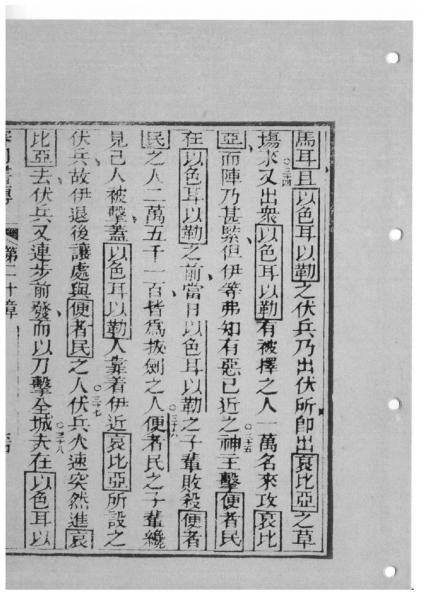 馬耳且以色耳以勒之伏兵乃出伏所即出哀比亞之草
塲〇三十四求又出衆以色耳以勒有被擇之人一萬名來攻哀比
亞而陣乃甚緊但伊等弗知有惡已近之〇三十五神主擊便者民
在以色耳以勒之前當日以色耳以勒之子輩敗殺便者
民之人二萬五千一百皆為拔劍之人〇三十六便者民之子輩纔
見己人被擊蓋以色耳以勒人靠着伊近哀比亞所設之
伏兵故伊退後讓處與便者民之人〇三十七伏兵火速突然進哀
比亞去伏兵又連步前發而以刀擊全城〇三十八夫在以色耳以
第二十章